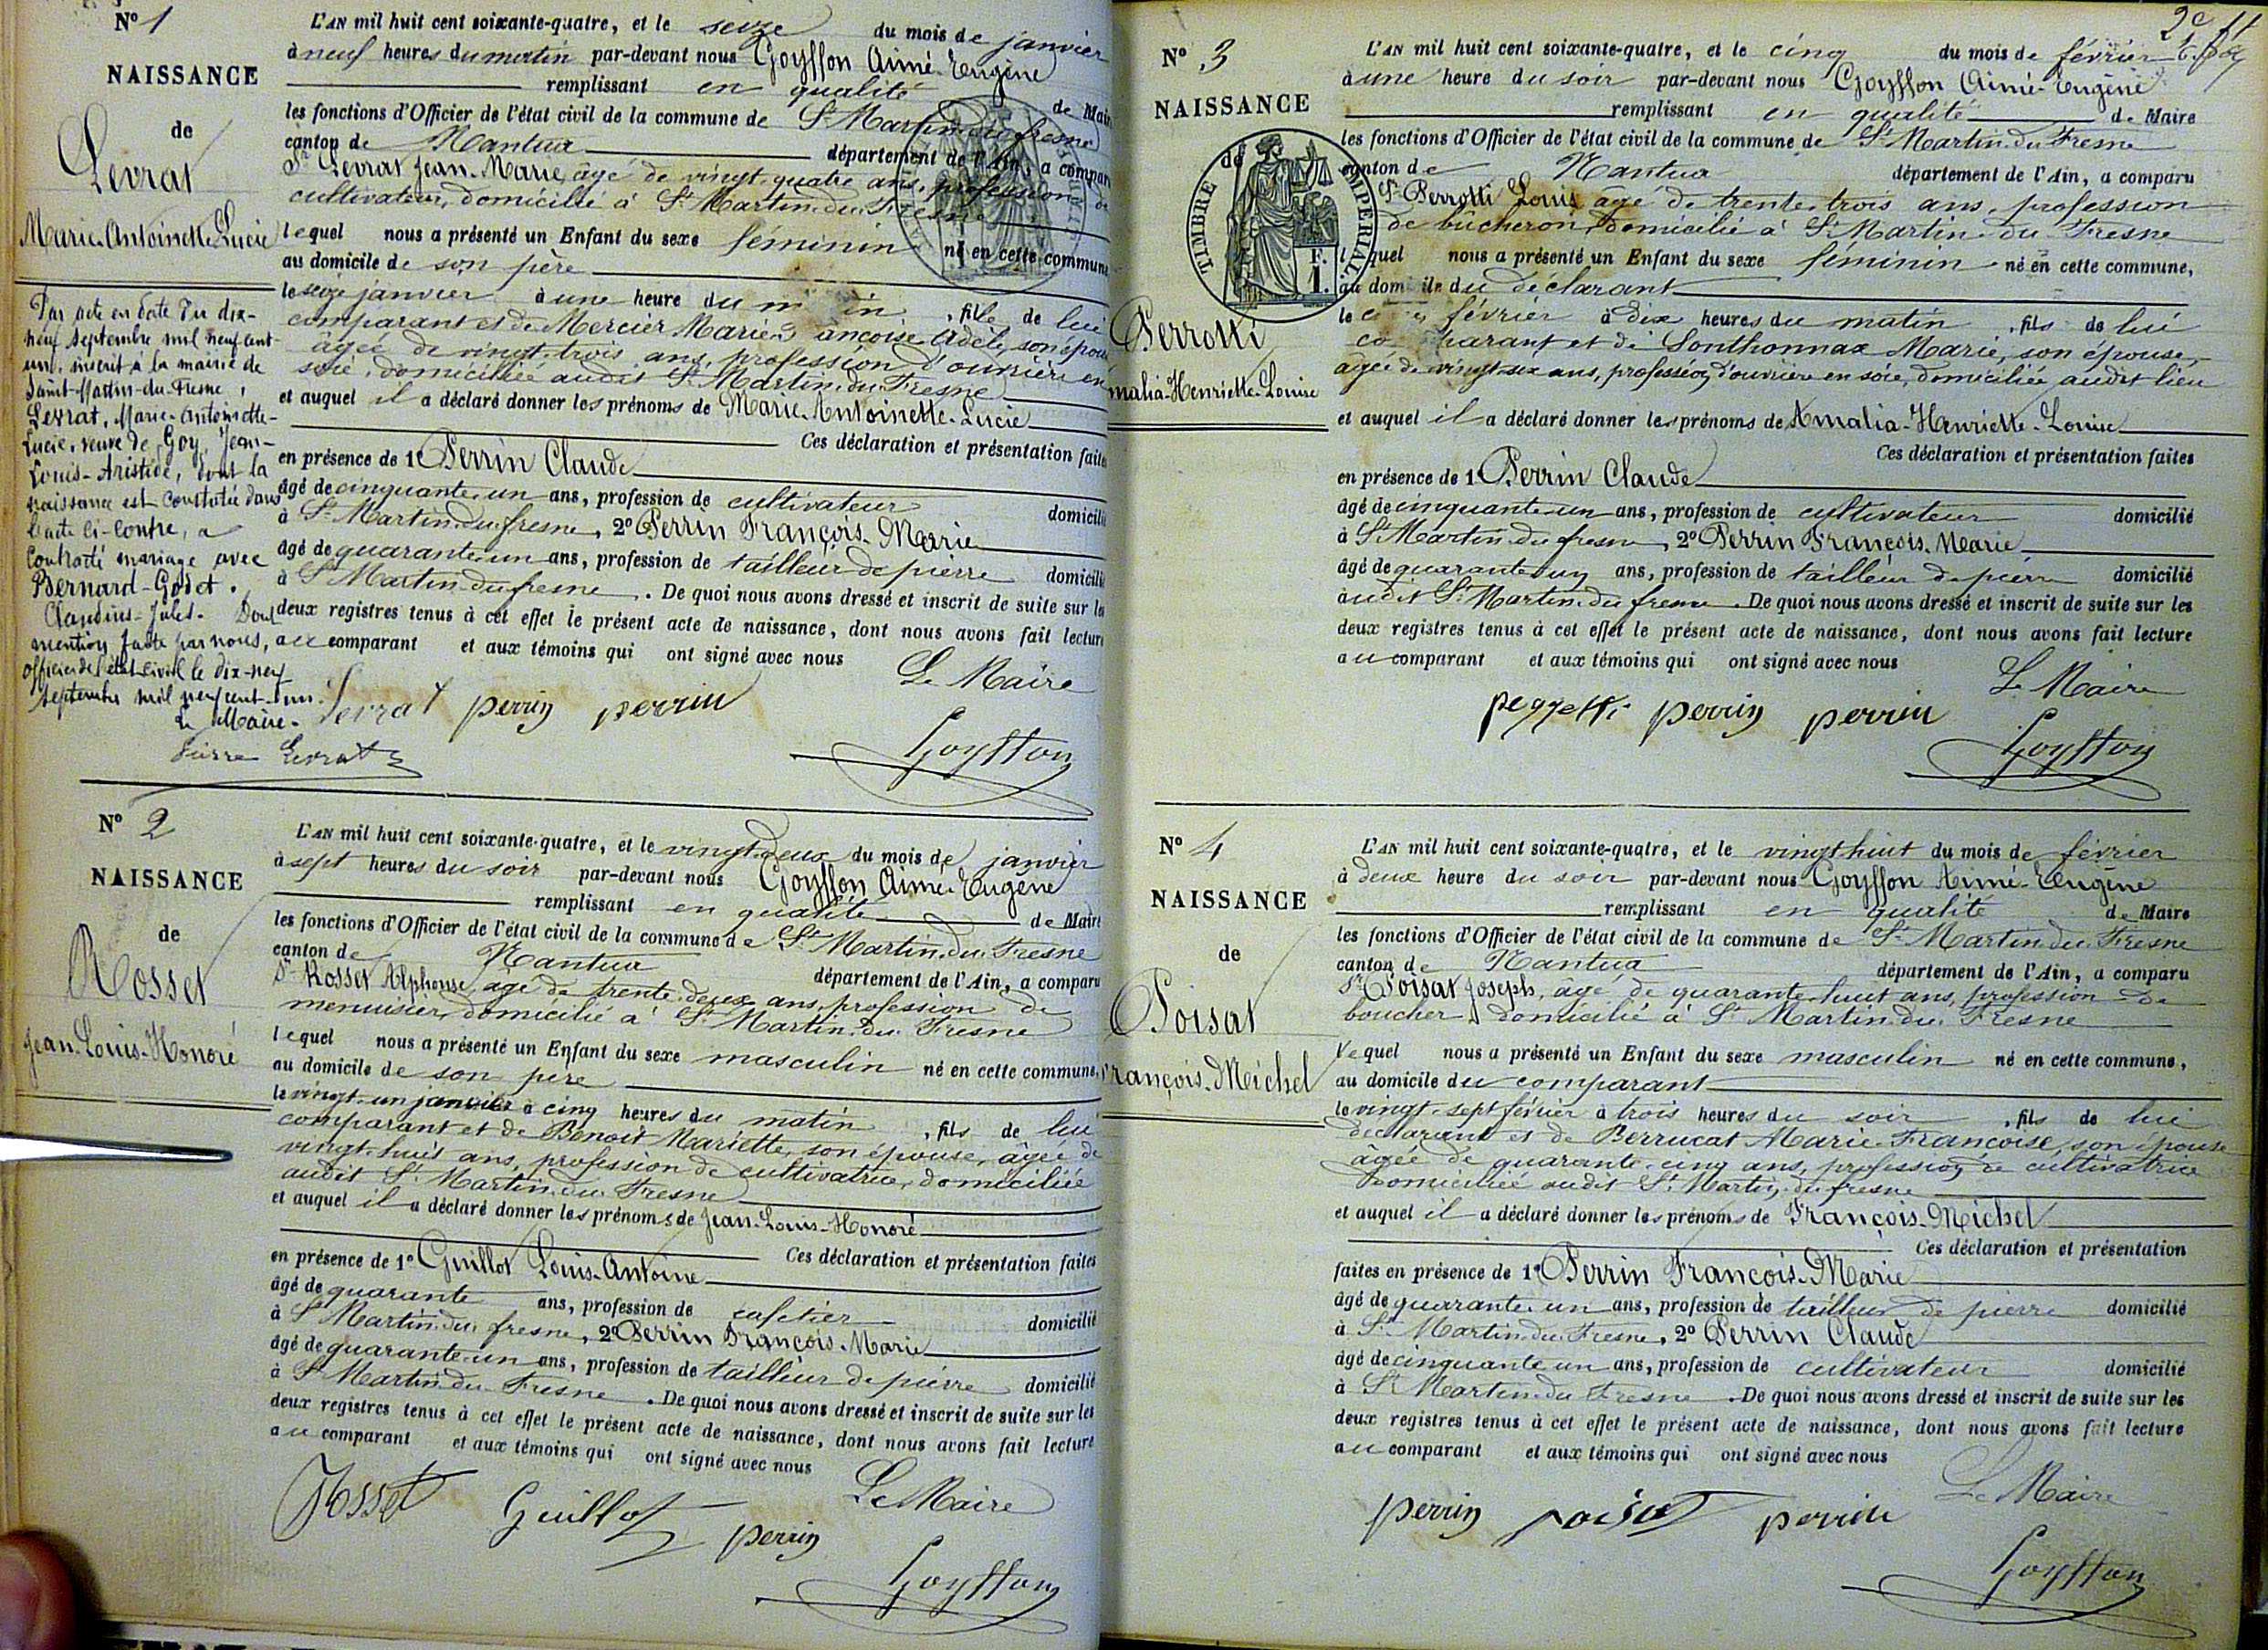 N° 1
NAISSANCE
de
Levrat
Marie-Antoinette-Lucie
Par acte en date du dix-
neuf septembre mil neuf cent-
un, inscrit à la mairie de
Saint-Martin-du-Fresne,
Levrat, Marie-Antoinette-
Lucie, veuve de Goy, Jean-
Louis-Aristide, dont la
naissance est constatée dans
l'acte ci-contre, a
contracté mariage avec
Bernard-Godet,
Claudius-Jules. Dont
mention faite par nous,
officier de l'état civil le dix-neuf
septembre mil neuf cent-un.
Le Maire.
Pierre Levrat
L'AN mil huit cent soixante-quatre, et le seize du mois de janvier
à neuf heures du matin par-devant nous Goyffon Aimé-Eugène
remplissant en qualité de Maire
les fonctions d'Officier de l'état civil de la commune de St Martin du fresne
canton de Nantua département de l'Ain, a comparu
Sr Levrat Jean-Marie, âgé de vingt-quatre ans, profession de
cultivateur, domicilié à St Martin-du-Fresne
lequel nous a présenté un Enfant du sexe féminin né en cette commune
au domicile de son père
le seize janvier à une heure du m in , fille de lui
comparant et de Mercier Marie F ançoise Adèle, son épouse
âgée de vingt-trois ans, profession d'ouvrière en
soie, domiciliée audit St Martin-du-Fresne
et auquel il a déclaré donner les prénoms de Marie-Antoinette-Lucie
Ces déclaration et présentation faites
en présence de 1° Perrin Claude
âgé de cinquante-un ans, profession de cultivateur domicilié
à St Martin-du-fresne, 2° Perrin François-Marie
âgé de quarante-un ans, profession de tailleur de pierre domicilié
à St Martin-du-fresne. De quoi nous avons dressé et inscrit de suite sur les
deux registres tenus à cet effet le présent acte de naissance, dont nous avons fait lecture
au comparant et aux témoins qui ont signé avec nous
Le Maire
Levrat perrin perrin
Goyffon
N° 2
NAISSANCE
de
Rosset
Jean-Louis-Honoré
L'AN mil huit cent soixante-quatre, et le vingt-deux du mois de janvier
à sept heures du soir par-devant nous Goyffon Aimé-Eugène
remplissant en qualité de Maire
les fonctions d'Officier de l'état civil de la commune de St Martin-du-Fresne
canton de Nantua département de l'Ain, a comparu
Sr Rosset Alphonse âgé de trente-deux ans, profession de
menuisier, domicilié à St Martin-du-Fresne
lequel nous a présenté un Enfant du sexe masculin né en cette commune,
au domicile de son père
le vingt-un janvier à cinq heures du matin , fils de lui
comparant et de Benoit Mariette, son épouse, âgée de
vingt-huit ans, profession de cultivatrice, domiciliée
audit St Martin-du-Fresne
et auquel il a déclaré donner les prénoms de Jean-Louis-Honoré
Ces déclaration et présentation faites
en présence de 1° Guillot Louis-Antoine
âgé de quarante ans, profession de cafetier domicilié
à St Martin-du-fresne, 2° Perrin François-Marie
âgé de quarante-un ans, profession de tailleur de pierre domicilié
à St Martin-du-Fresne. De quoi nous avons dressé et inscrit de suite sur les
deux registres tenus à cet effet le présent acte de naissance, dont nous avons fait lecture
au comparant et aux témoins qui ont signé avec nous
Le Maire
Rosset Guillot perrin
Goyffon
2e ff
N° 3
NAISSANCE
de
TIMBRE IMPERIAL
F.
1.
Perrotti
malia-Henriette-Louise
L'AN mil huit cent soixante-quatre, et le cinq du mois de février
à une heure du soir par-devant nous Goyffon Aimé-Eugène
remplissant en qualité de Maire
les fonctions d'Officier de l'état civil de la commune de St Martin-du-Fresne
canton de Nantua département de l'Ain, a comparu
Sr Perrotti Louis âgé de trente-trois ans, profession
de bûcheron, domicilié à St Martin-du-Fresne
l quel nous a présenté un Enfant du sexe féminin né en cette commune,
au dom ile du déclarant
le c février à dix heures du matin , fils de lui
co parant et de Sonthonnax Marie, son épouse,
âgée de vingt-six ans, profession d'ouvrière en soie, domiciliée audit lieu
et auquel il a déclaré donner les prénoms de Amalia-Henriette-Louise
Ces déclaration et présentation faites
en présence de 1° Perrin Claude
âgé de cinquante-un ans, profession de cultivateur domicilié
à St Martin-du-fresne, 2° Perrin François-Marie
âgé de quarante-un ans, profession de tailleur de pierre domicilié
audit St Martin-du-fresne. De quoi nous avons dressé et inscrit de suite sur les
deux registres tenus à cet effet le présent acte de naissance, dont nous avons fait lecture
au comparant et aux témoins qui ont signé avec nous
Le Maire
perrin perrin
Goyffon
N° 4
NAISSANCE
de
Poisat
François-Michel
L'AN mil huit cent soixante-quatre, et le vingt huit du mois de février
à deux heure du soir par-devant nous Goyffon Aimé-Eugène
remplissant en qualité de Maire
les fonctions d'Officier de l'état civil de la commune de St Martin-du-Fresne
canton de Nantua département de l'Ain, a comparu
Sr Poisat Joseph, âgé de quarante-huit ans, profession de
boucher, domicilié à St Martin-du-Fresne
lequel nous a présenté un Enfant du sexe masculin né en cette commune,
au domicile du comparant
le vingt-sept février à trois heures du soir , fils de lui
déclarant et de Berrucat Marie-Françoise, son épouse
âgée de quarante-cinq ans, profession de cultivatrice
domiciliée audit St Martin-du-fresne
et auquel il a déclaré donner les prénoms de François-Michel
Ces déclaration et présentation
faites en présence de 1° Perrin François-Marie
âgé de quarante-un ans, profession de tailleur de pierre domicilié
à St Martin-du-Fresne, 2° Perrin Claude
âgé de cinquante un ans, profession de cultivateur domicilié
à St Martin-du-Fresne. De quoi nous avons dressé et inscrit de suite sur les
deux registres tenus à cet effet le présent acte de naissance, dont nous avons fait lecture
au comparant et aux témoins qui ont signé avec nous
Le Maire
perrin poisat perrin
Goyffon